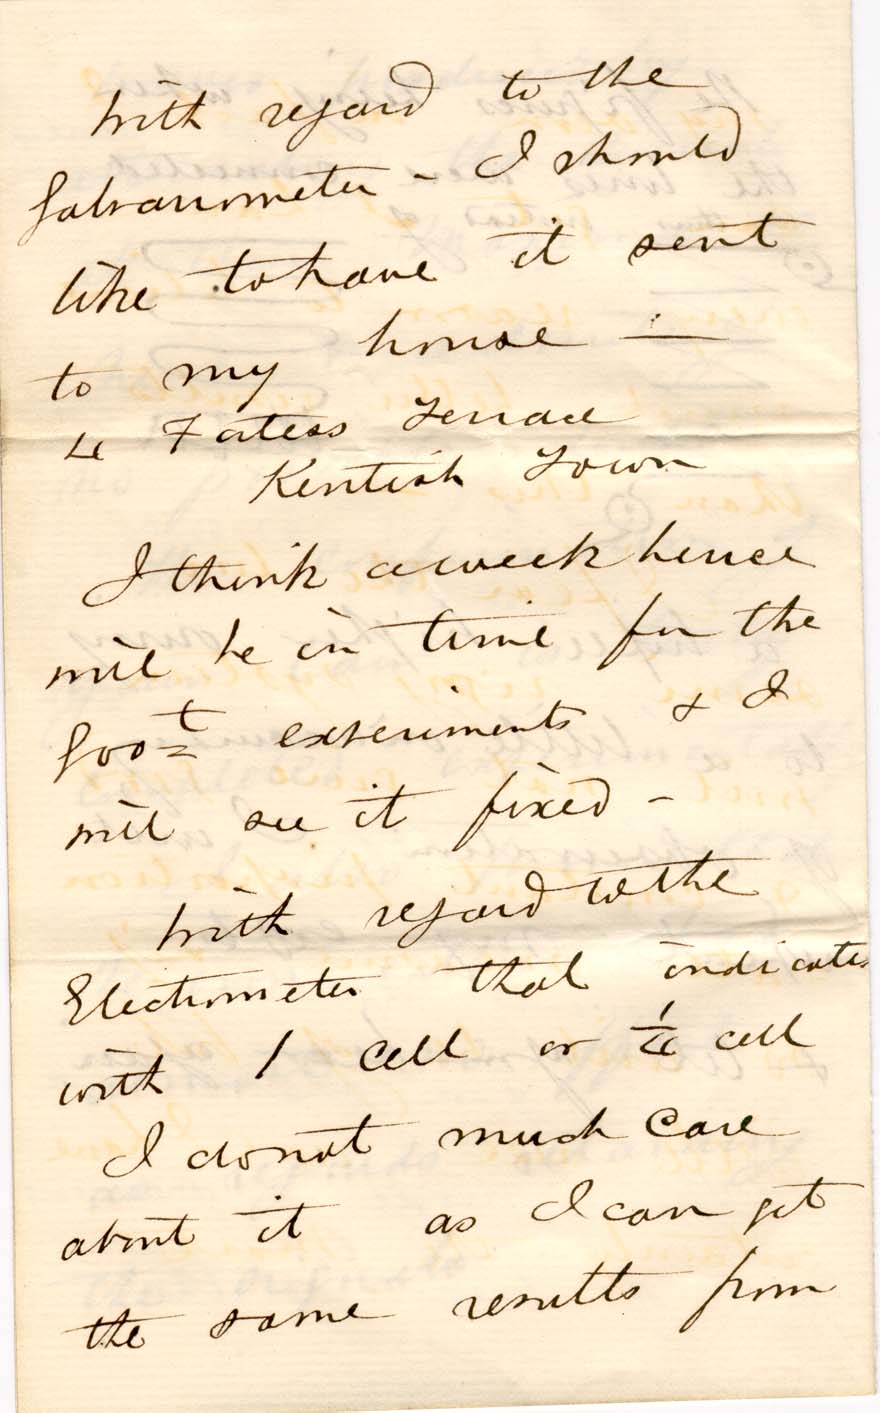 With regard to the
Galvanometer - I should
like to have it sent
to my house —
4 Fortess Terrace
Kentish Town
I think a week hence
will be in time for the
Goo<sup>t</sup> experiments & I
will see it fixed -
With regard to the
Electrometer that indicates
with 1 Cell or 1/4 cell
I do not much Care
about it as I can get
the same results from